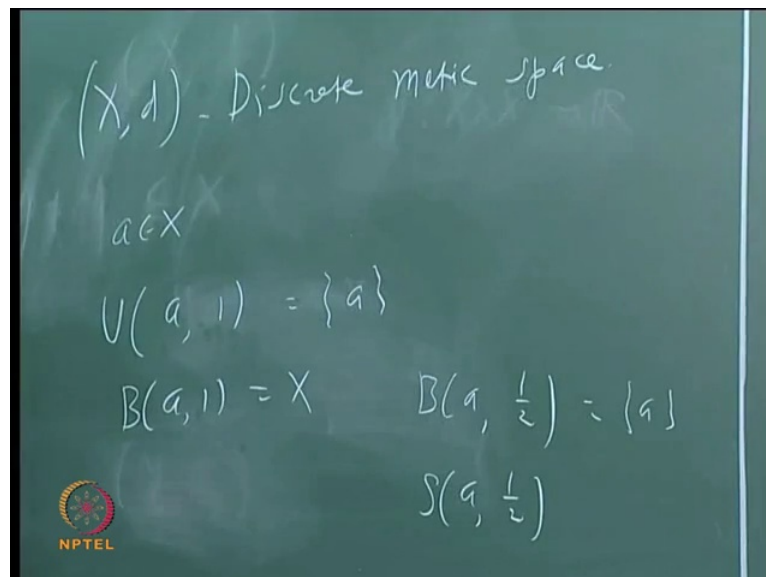 (X, d) - Discrete metric space.
a ∈ X
U(a, 1) = {a}
B(a, 1) = X B(a, 1/2) = {a}
S(a, 1/2)
NPTEL